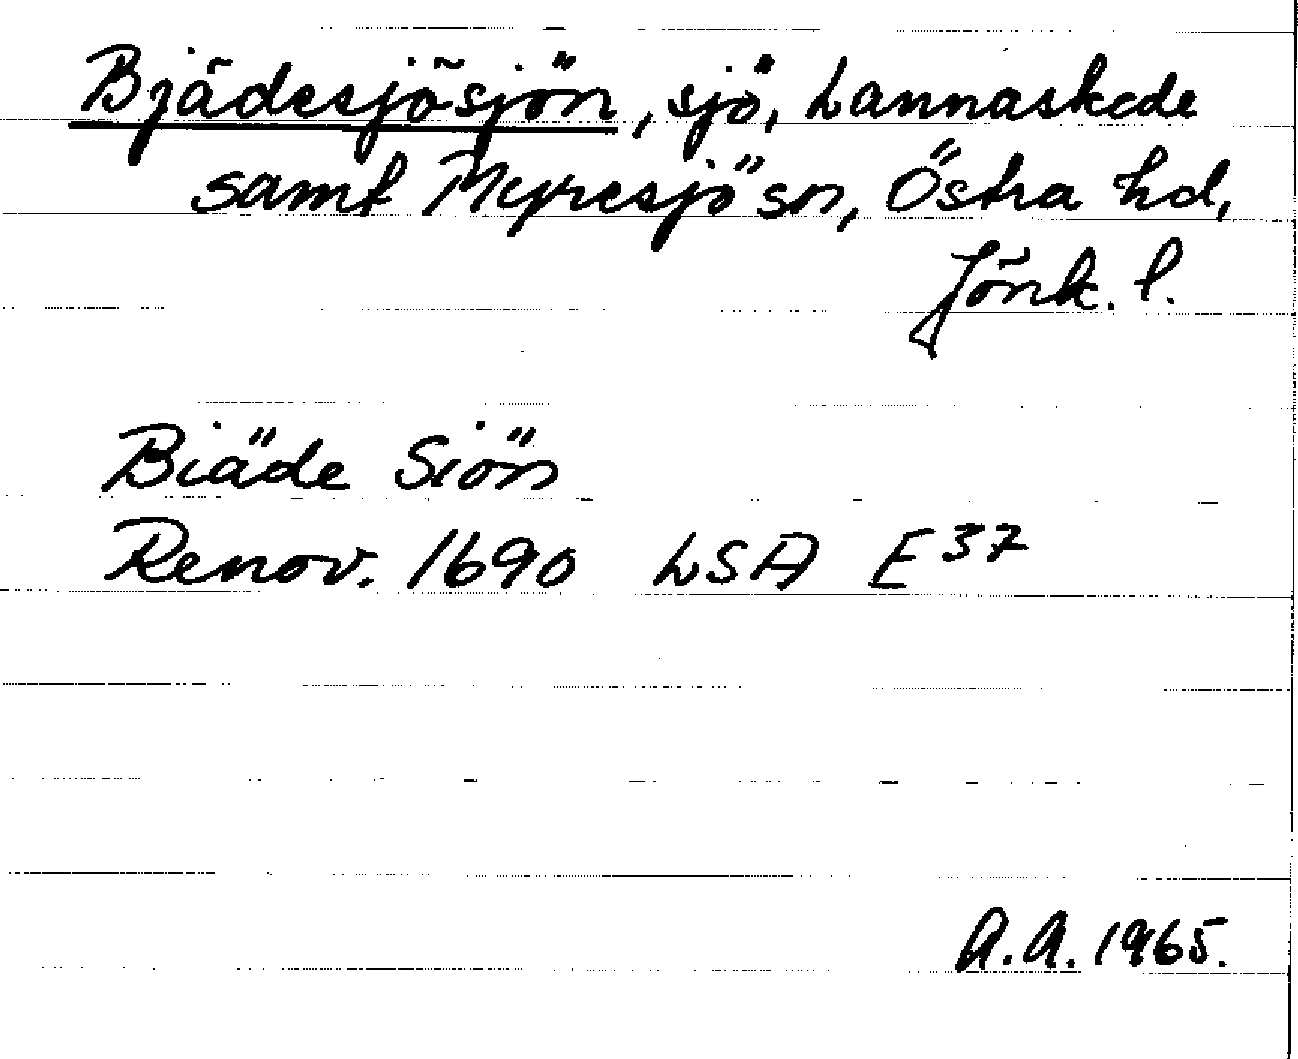 Bjädesjösjön, sjö, Lannaskede
samt Myresjö sn, Östra hd,
Jönk. l.
Biäde Siön
Renov. 1690 LSA E³⁷
A.A. 1965.